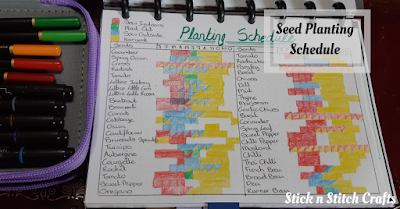 Seed Planting
Schedule
Planting Schedule
Sow Indoors
Plant Out
Sow Outside
Harvest
Seeds
J F M A M J J A S O N D
Cucumber
Spring Onion
Cress
Radish
Tomato
Lettuce
Lettuce Little Gem
Lettuce
Beetroot
Broccoli
Carrots
Cabbage
Onion
Cauliflower
Brussels Sprouts
Turnips
Aubergine
Courgette
Rocket
Tomato
Sweet Pepper
Oregano
Seeds
Tomato
Radishes
Parsley
Basil
Chives
Dill
Mint
Thyme
Marjoram
Garlic Chives
Basil
Coriander
Spring Leaf
Sweet Pepper
Chilli Pepper
Mustard
Chilli
Thai Chilli
French Bean
Broad Bean
Pea
Runner Bean
Stick n Stitch Crafts